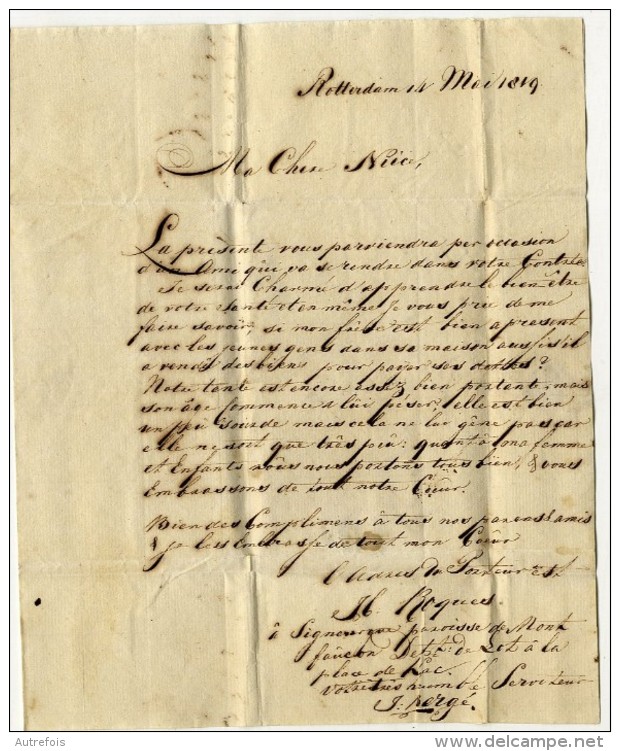 Rotterdam 14 Mai 1819
Ma Chere Niice,
La présente vous parviendra per occasion
d'un Ami qui va se rendre dans votre Contrée
Je serai Charmé d'apprendre le bien être
de votre santé et en même je vous prie de me
faire savoir, si mon frère est bien apresent
avec les jeunes gens dans sa maison aussi s'il
a vendu des biens pour payer ses dettes?
Notre tante est encore assez bien portante, mais
son âge Commence a lui péser, elle est bien
un peu sourde mais cela ne lui gêne pas car
elle ne sort que très peû: quant à ma femme
et Enfants nous nous portons tous bien, & vous
Embrassons de tout notre Coeur.
Bien des Complimens à tous nos parens & amis
& je les embrasse de tout mon Coeur
l'adres du Porteur est
Roques
à paroisse de Mont
faucon Dept. de Lot à la
place de Lac.
Votre très humble Serviteur
J: Borgé.
Autrefois
www.delcampe.net